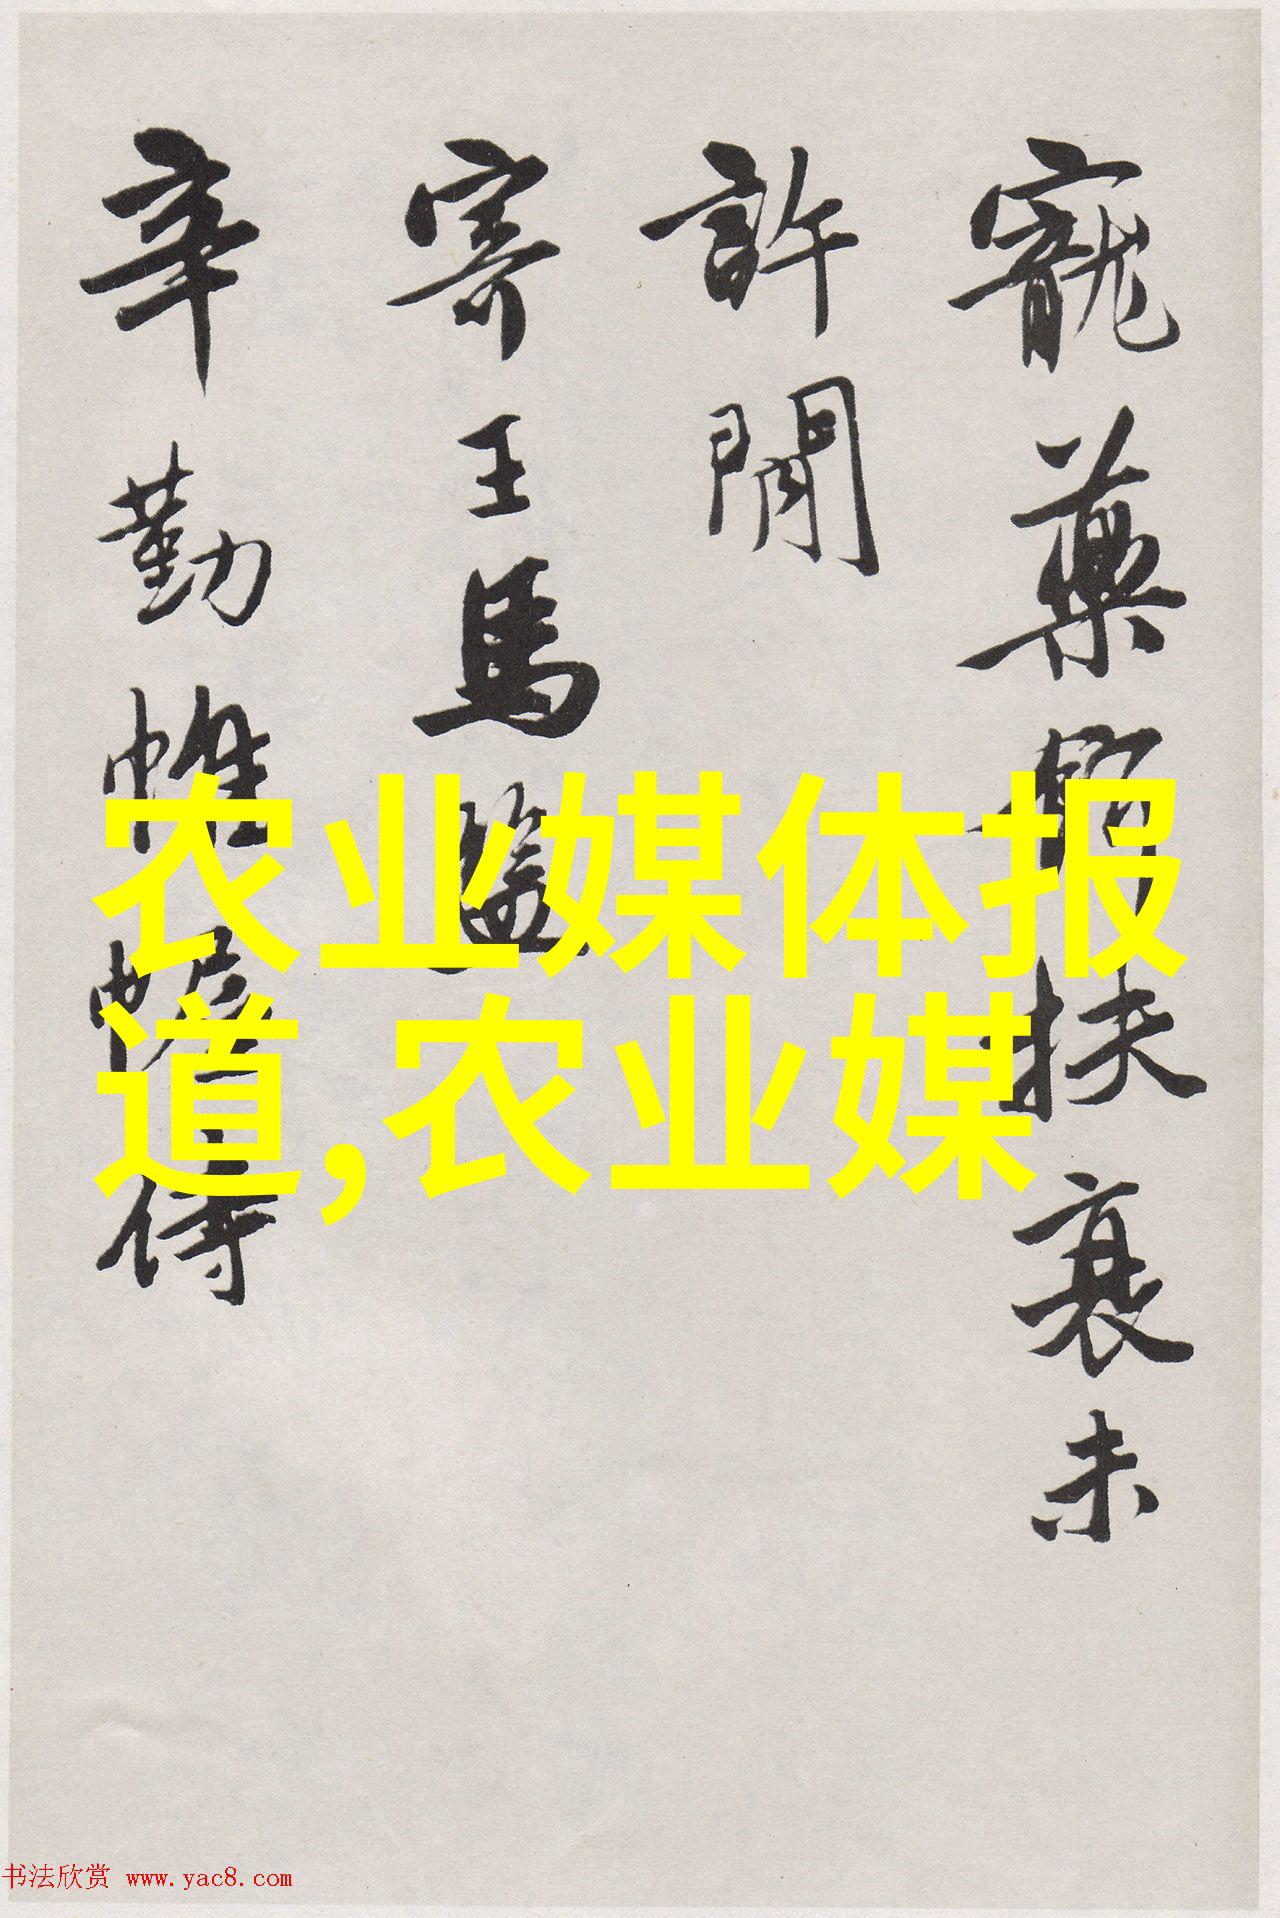 寵藥餌扶衰未
許閒
寄王馬監
辛勤帷幄侍
农业媒体报
道,农业媒
书法欣赏 www.yac8.com